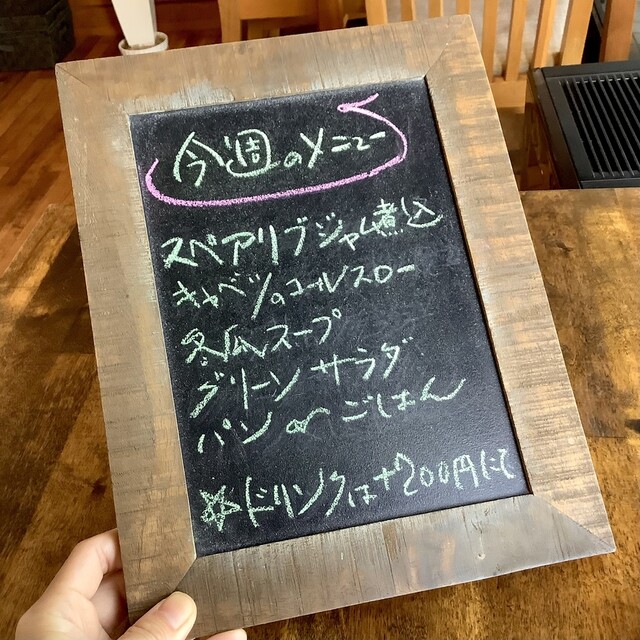 今週のメニュー
スペアリブジャム煮込
キャベツのコールスロー
冬瓜スープ
グリーンサラダ
パン or ごはん
☆ドリンクは+200円にて